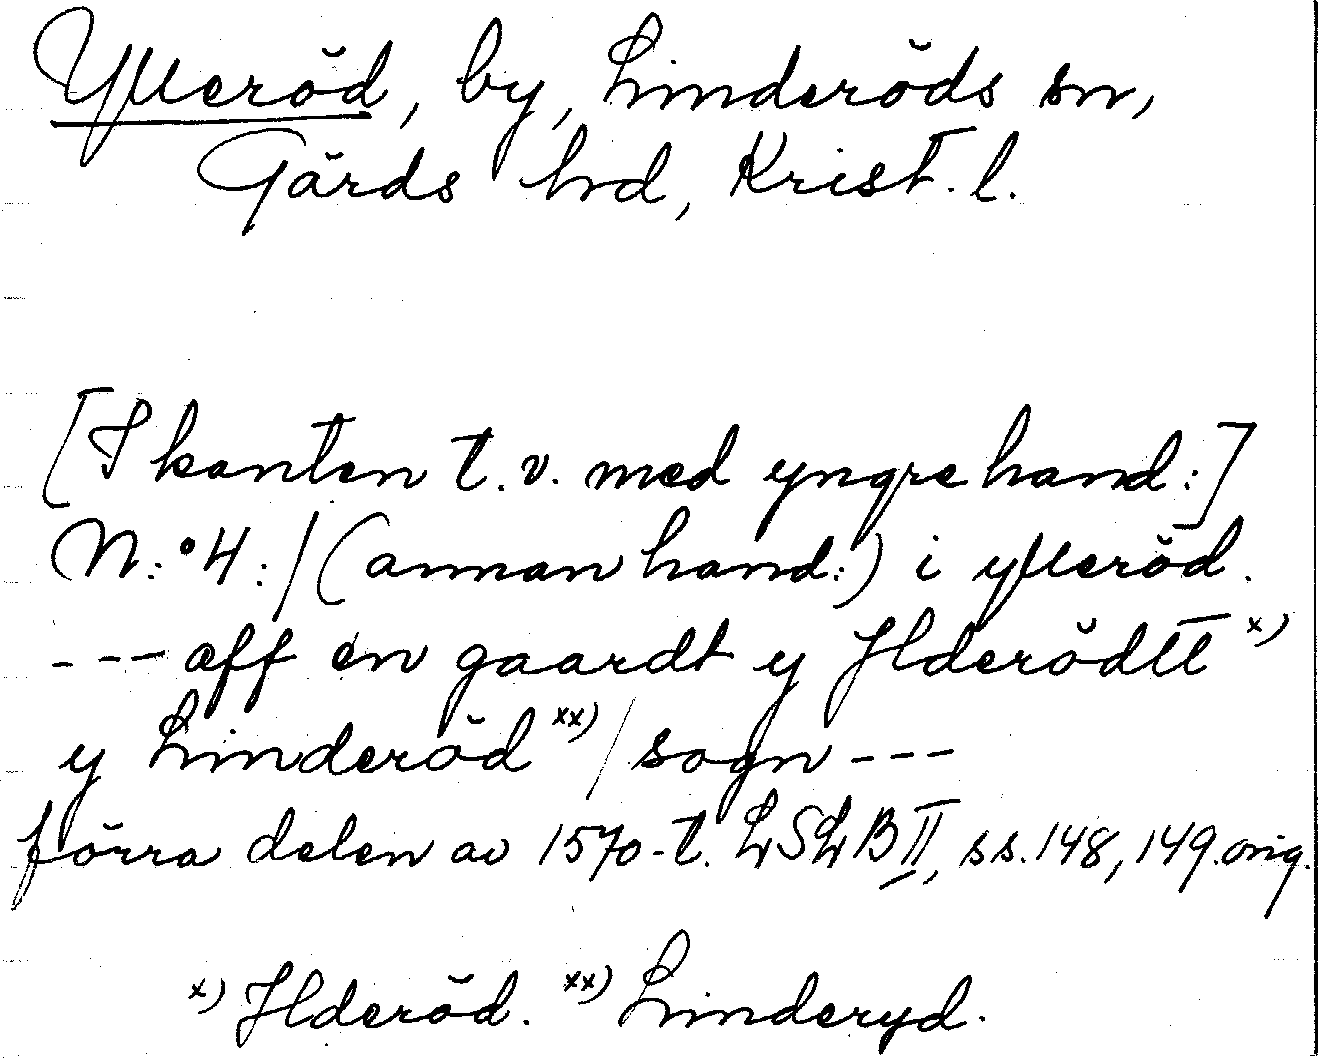 Ylleröd, by, Linderöds sn,
Gärds hd, Krist. l.
[I kanten t. v. med yngre hand:]
N:o 4:/(annan hand:) i ylleröd.
--- aff en gaardt y Jlderödtt x)
y Linderöd xx)/sogn ---
förra delen av 1570-t. LSLB II, ss. 148, 149. orig.
x) Jlderöd. xx) Linderyd.